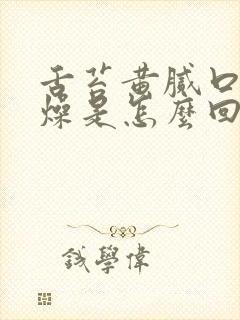 舌苔黄腻口
燥是怎麼回
錢學偉